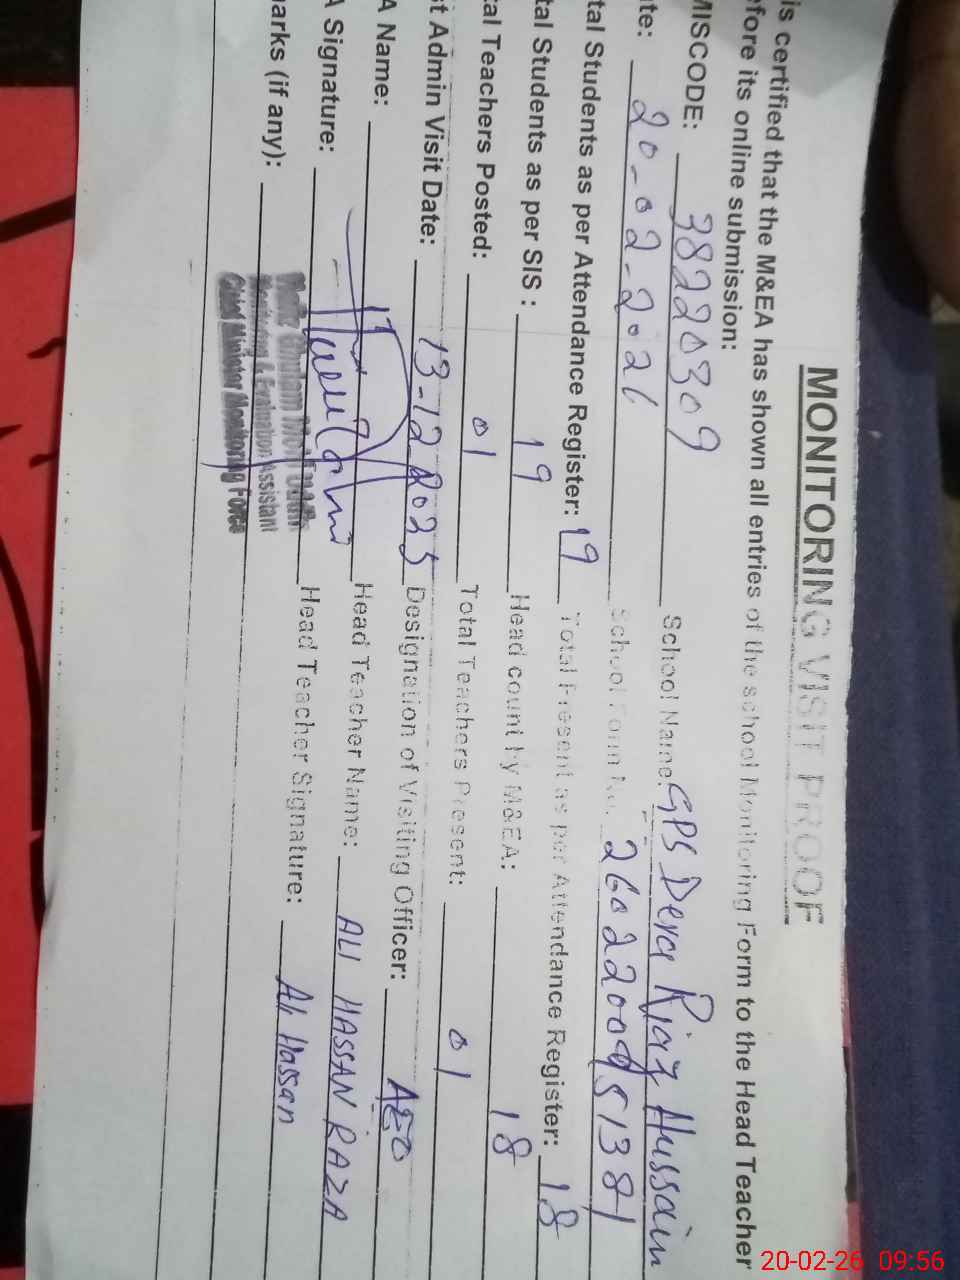 MONITORING VISIT PROOF
is certified that the M&EA has shown all entries of the school Monitoring Form to the Head Teacher
efore its online submission:
MISCODE: 38220309 School Name: GPS Dera Riaz Hussain
ate: 20-02-2026 School Form No. 
tal Students as per Attendance Register: 19 Total Present as per Attendance Register: 18
tal Students as per SIS : 19 Head count by M&EA: 18
tal Teachers Posted: 01 Total Teachers Present: 01
st Admin Visit Date: 13-12-2025 Designation of Visiting Officer: AEO
A Name: Head Teacher Name: ALI HASSAN RAZA
A Signature: Head Teacher Signature: Ali Hassan
arks (if any):
Hafiz Ghulam
Monitoring & Evaluation Assistant
Chief Minister Monitoring Force
20-02-26 09:56